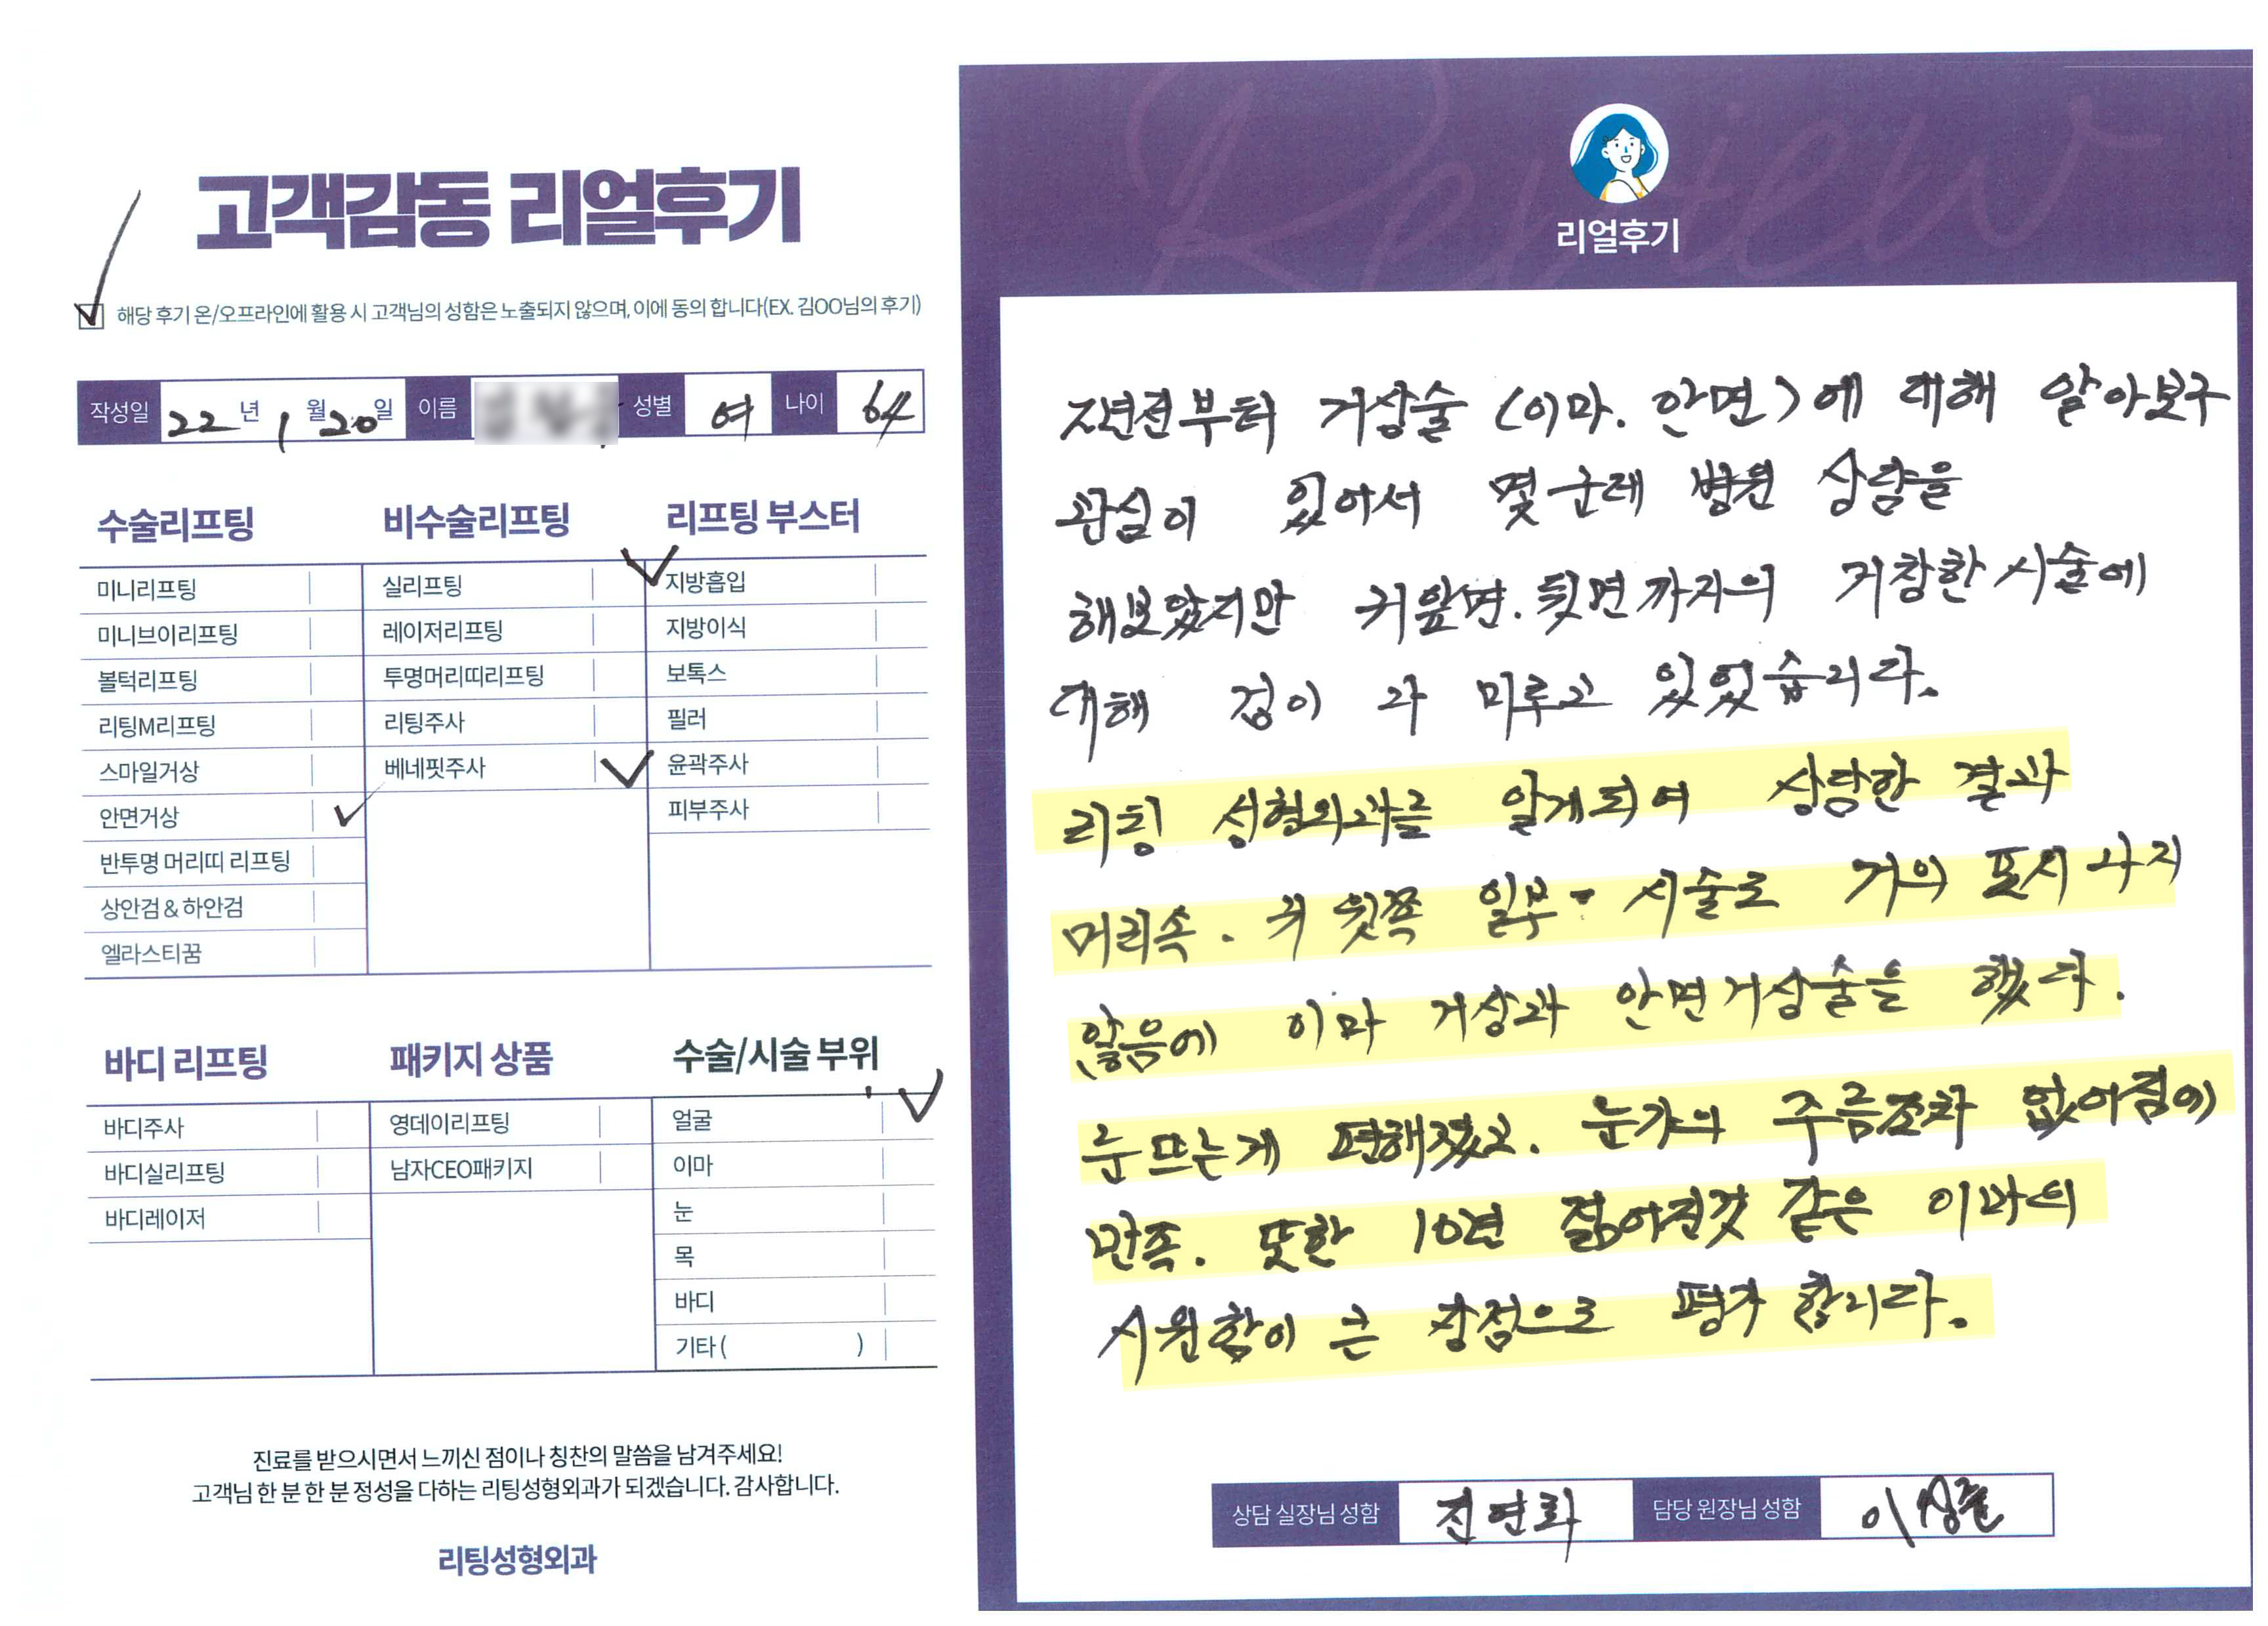 고객감동 리얼후기
해당 후기 온/오프라인에 활용 시 고객님의 성함은 노출되지 않으며, 이에 동의 합니다(EX. 김OO님의 후기)
작성일 22년 1월 20일 이름 성별 여 나이 64
수술리프팅
미니리프팅
미니브이리프팅
볼턱리프팅
리팅M리프팅
스마일거상
안면거상
반투명 머리띠 리프팅
상안검 & 하안검
엘라스티꿈
비수술리프팅
실리프팅
레이저리프팅
투명머리띠리프팅
리팅주사
베네핏주사
리프팅 부스터
지방흡입
지방이식
보톡스
필러
윤곽주사
피부주사
바디 리프팅
바디주사
바디실리프팅
바디레이저
패키지 상품
영데이리프팅
남자CEO패키지
수술/시술 부위
얼굴
이마
눈
목
바디
기타 ( )
진료를 받으시면서 느끼신 점이나 칭찬의 말씀을 남겨주세요!
고객님 한 분 한 분 정성을 다하는 리팅성형외과가 되겠습니다. 감사합니다.
리팅성형외과
Review
리얼후기
부터 거상술 (이마. 안면)에 대해 알아보구
관심이 있어서 몇군데 병원 상담을
해보았지만 귀앞면. 뒷면까지의 거창한 시술에
대해 겁이 나 미루고 있었습니다.
리팅 성형외과를 알게되어 상담한 결과
머리속. 귀 뒷쪽 일부 시술로 거의 표시 나지
않음에 이마 거상과 안면거상술을 했다.
눈뜨는게 편해졌고. 눈가의 주름조차 없어짐에
만족. 또한 10년 젊어진것 같은 이마의
시원함이 큰 장점으로 평가 합니다.
상담 실장님 성함 진연화 담당 원장님 성함